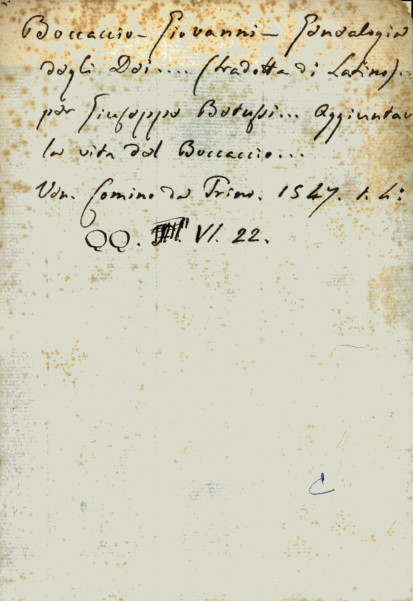 Boccaccio – Giovanni – Genealogia
degli Dei.... (tradotta di Latino).
per Giuseppe Betussi... Aggiuntavi
la vita del Boccaccio...
Ven. Comino da Trino. 1547. t. 4:
QQ. VI. 22.
C